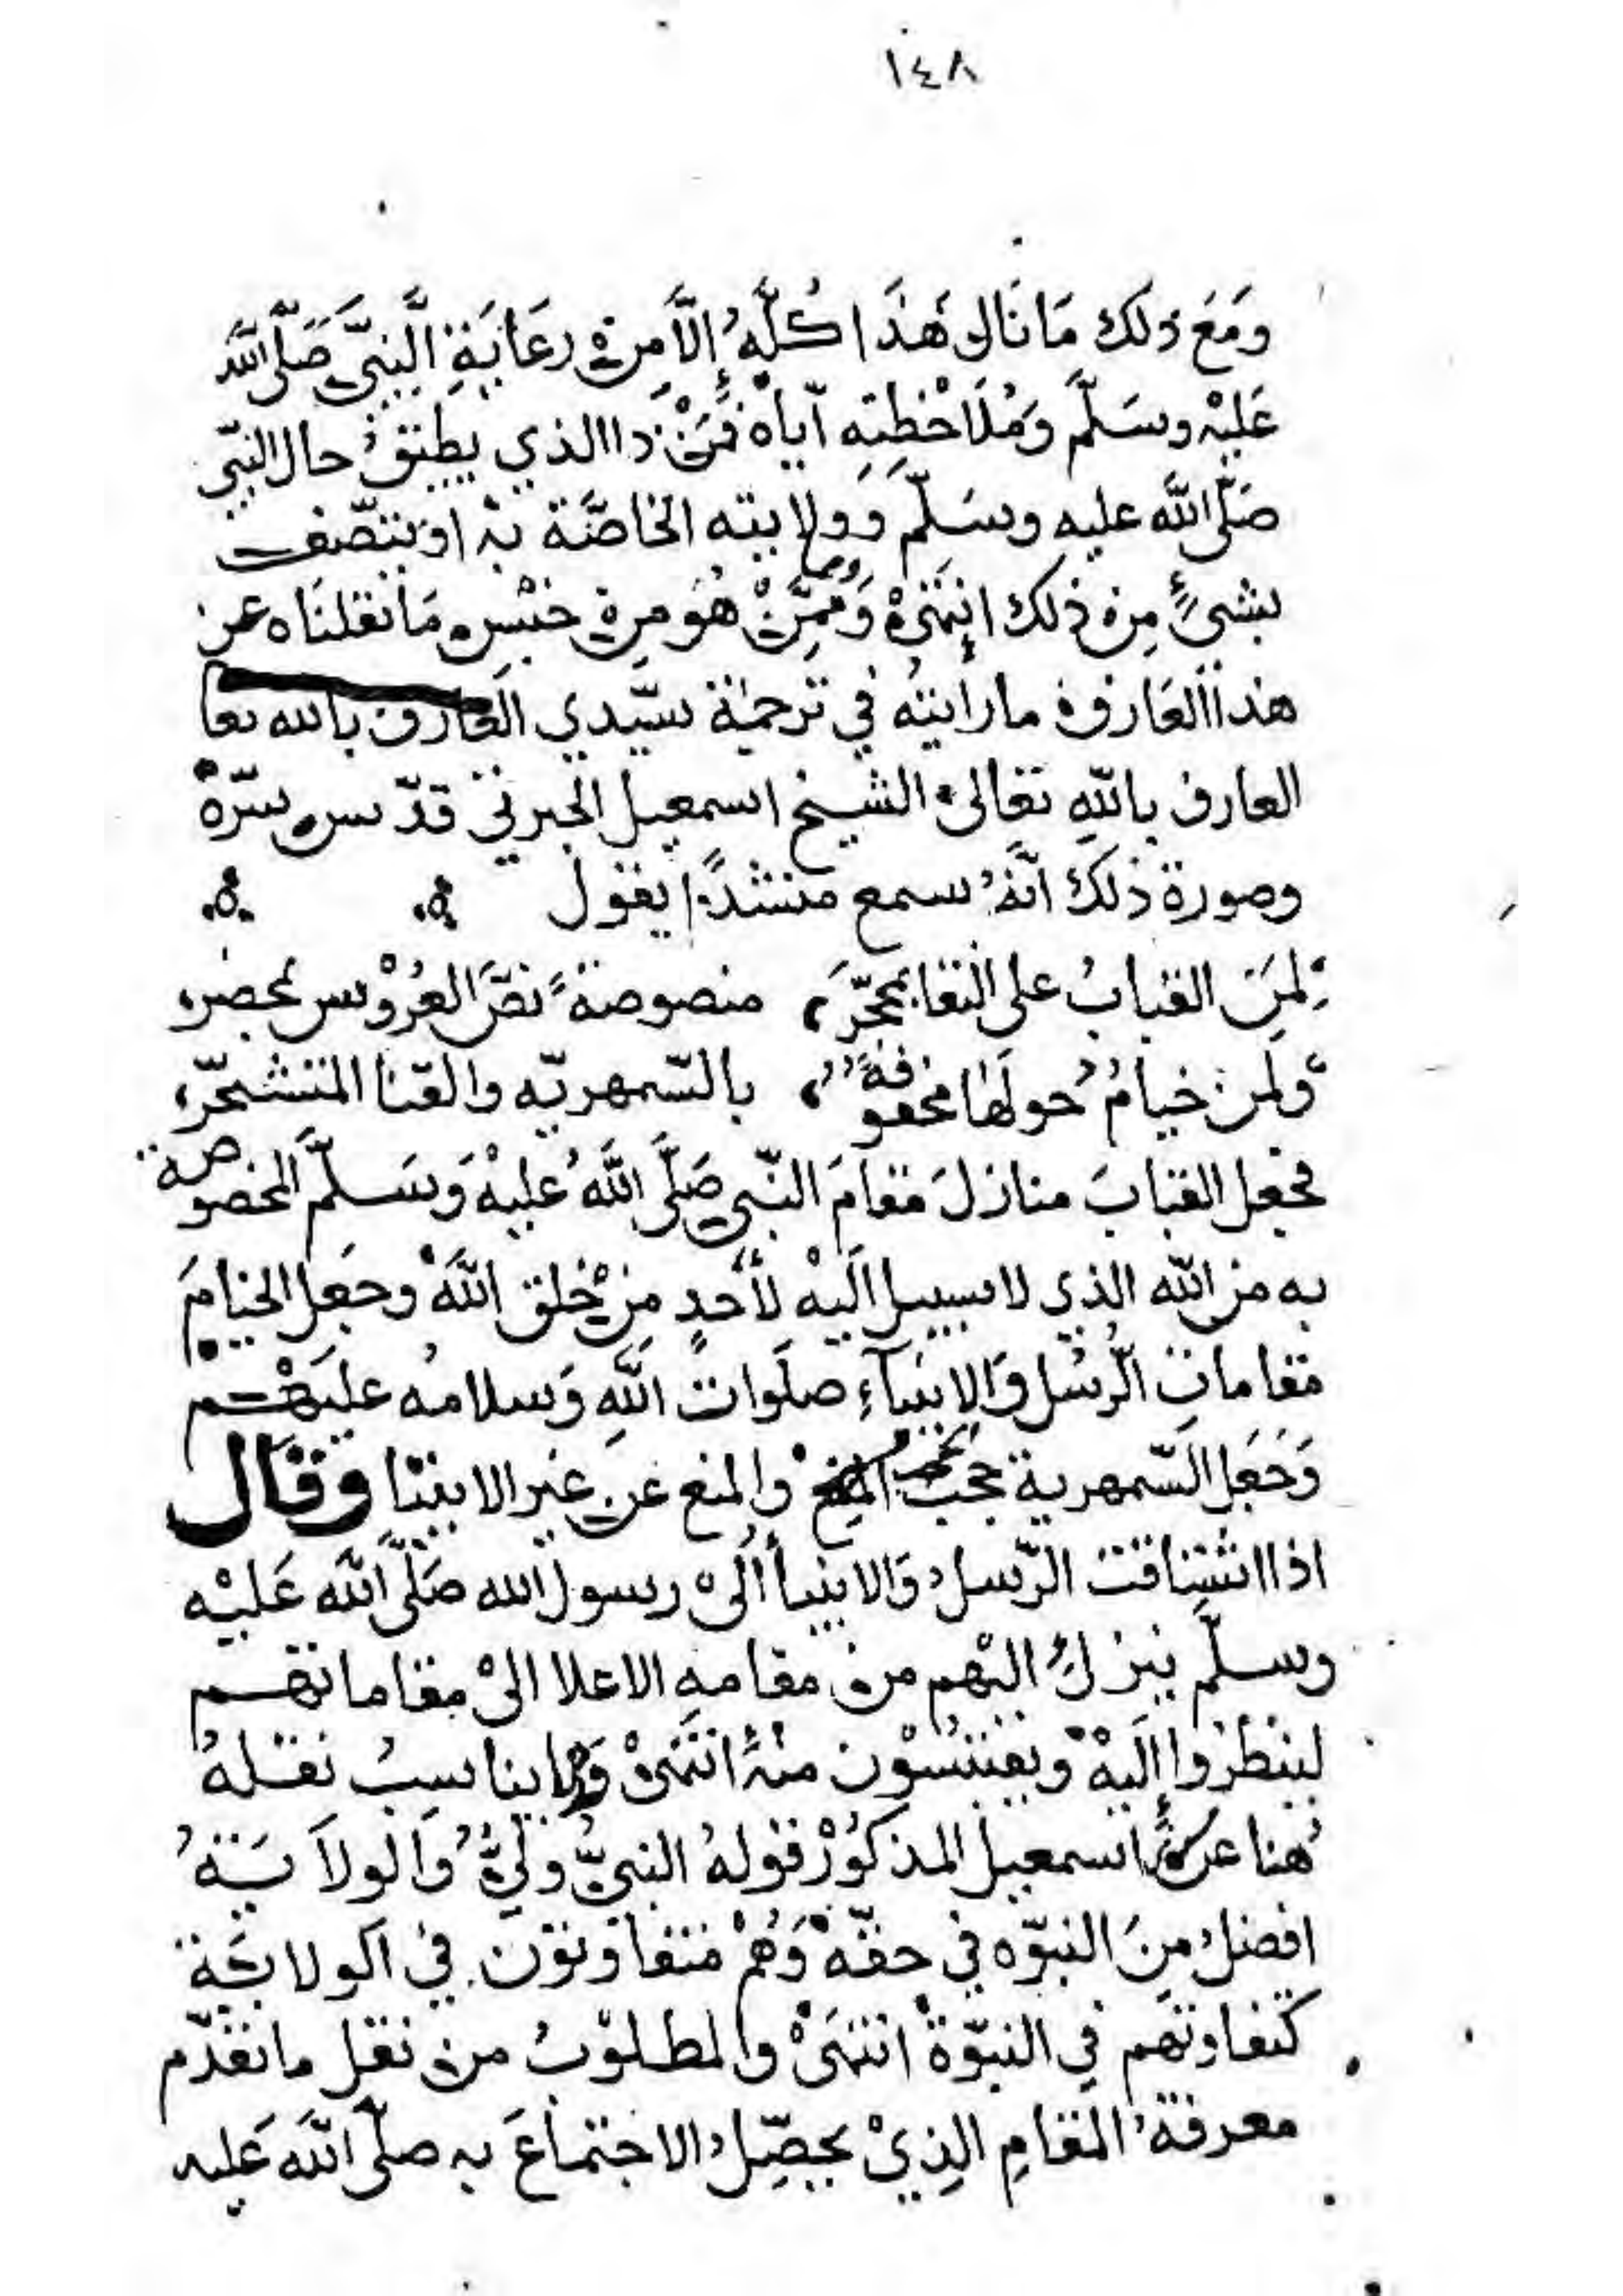 ١٤٨
وَمَعَ ذلك مَا نَالى هَذَا كُلَّهُ إِلاَّ مِنْ رعَايَةِ النبىّ صَلّى اللّه
عَليْه وسَلَّم وَمُلَاحَظتِه آياهْ فَمَنْ ذا الذي يطيقُ حال النبّي
صَلّى اللّه عليه وسَلّم وَولايته الخاصَّة به اوْ يتّصف
بشىءٍ مِن ذلك انتهىْ وَممّنْ هُو مِن جنْس مَا نقلنَاه عن
هذا العَارف ما رأيتهُ في ترجمة سيّدي العَارف بالله تعا
العارف باللّهِ تعَالى الشيخ اسمعيل الجبرتي قدّس سرّهْ
وصورة ذلك انّهُ سمع منشدًا يقول
لمَن القبابُ على النقا بمحجّر منصوصةً نصَّ العُرُوْس بمحضر
ولمن خيامُ حولهَا محفوفةً بالسّمهريّه والقنا المتشجّر
فجعل القبابَ منازلَ مقامَ النّبي صَلَّى اللَّهُ عليْهْ وَسَلّم المخصوصة
به من اللّه الذي لا سبيل اليْه لأحدٍ مِنْ خلق اللَّهْ وجَعل الخيامَ
مقاماتِ الرُّسُل وَالانبيآءِ صلَوات اللَّهِ وَسلامُه عليهْم
وَجَعَل السّمهرية حجبَ والمنع عن غير الانبيّا وَقَال
اذا اشتاقت الرّسلُ وَالانبيأ الىْ رسول الله صَلَّى اللَّه عَليْه
وسلّم ينزلُ اليْهم من مقامهِ الاعلا الىْ مقاماتهم
لينظرُوا إِليهْ ويقتبسُوْن منهُ انتهىْ وَمما يناسِبُ نقلهُ
هُنا عن اسمعيل المذكُوْر قولهُ النبيُّ وليٌّ وَالولاَيَةُ
افضلُ مِنَ النبوّه في حقّهْ وَهُمْ متفاوتوْن في الولايَة
كتفاوتهم في النبوّة انتهَىْ والمطلوْبُ من نقل ما تقدّم
معرفةُ المقامِ الذِيْ يحصِّلُ الاجتماعَ به صلّى اللَّه عَليه